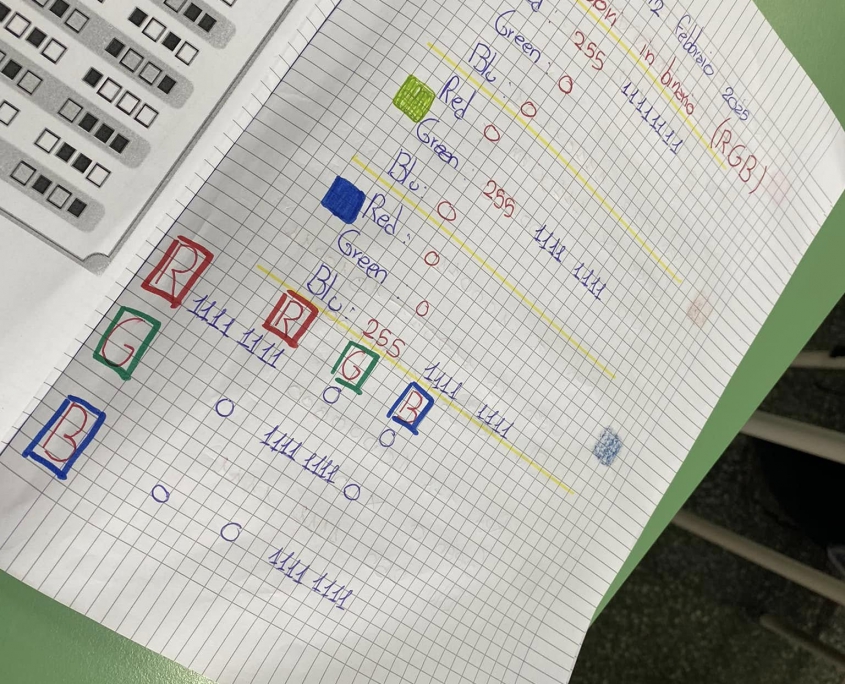 12 Febbraio 2025
in binario (RGB)
255 11111111
Green: 0
Blu: 0
Red 0
Green: 255 1111 1111
Blu: 0
Red: 0
Green: 0
Blu: 255 1111 1111
R G B
R 1111 1111 0 0
G 0 1111 1111 0
B 0 0 1111 1111